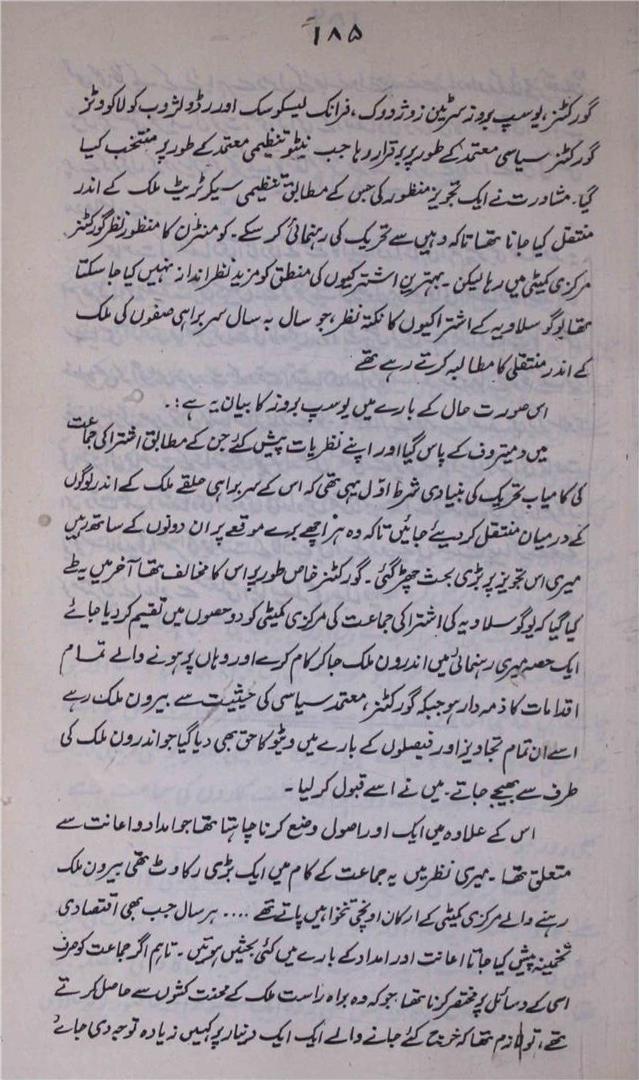 ۱۸۵
گورکٹنز، یوسپ بروز سرٹین زوژوووک، فرانک لیسکوسک اور رڈولڑوب کولاکووٹز
گورکٹنز سیاسی معتمد کے طور پر برقرار رہا جب نیٹو تنظیمی معتمد کے طور پر منتخب کیا
گیا۔ مشاورت نے ایک تجویز منظور کی جس کے مطابق تنظیمی سیکرٹریٹ ملک کے اندر
منتقل کیا جانا تھا تاکہ وہیں سے تحریک کی رہنمائی کر سکے۔ کومنٹرن کا منظور نظر گورکٹنز
مرکزی کمیٹی میں رہا لیکن۔ بہترین اشتراکیوں کی منطق کو مزید نظر انداز نہیں کیا جا سکتا
تھا یوگوسلاویہ کے اشتراکیوں کا نکتہ نظر، جو سال بہ سال سربراہی صفوں کی ملک
کے اندر منتقلی کا مطالبہ کرتے رہے تھے
اس صورت حال کے بارے میں یوسپ بروز کا بیان یہ ہے:۔
میں دمیتروف کے پاس گیا اور اپنے نظریات پیش کئے جن کے مطابق اشتراکی جماعت
کی کامیاب تحریک کی بنیادی شرط اوّل یہی تھی کہ اس کے سربراہی حلقے ملک کے اندر لوگوں
کے درمیان منتقل کر دیئے جائیں تاکہ وہ ہر اچھے برے موقع پر ان دونوں کے ساتھ رہیں
میری اس تجویز پر بڑی بحث چھڑ گئی۔ گورکٹنز خاص طور پر اس کا مخالف تھا آخر میں یہ طے
کیا گیا کہ یوگوسلاویہ کی اشتراکی جماعت کی مرکزی کمیٹی کو دو حصوں میں تقیم کر دیا جائے
ایک حصہ میری رہنمائی میں اندرون ملک جا کر کام کرے اور وہاں پر ہونے والے تمام
اقدامات کا ذمہ دار ہو جبکہ گورکٹنز، معتمد سیاسی کی حیثیت سے بیرون ملک رہے
اسے ان تمام تجاویز اور فیصلوں کے بارے میں ویٹو کا حق بھی دیا گیا جو اندرون ملک کی
طرف سے بھیجے جاتے۔ میں نے اسے قبول کر لیا۔
اس کے علاوہ میں ایک اور اصول وضع کرنا چاہتا تھا جو امداد و اعانت سے
متعلق تھا۔ میری نظر میں یہ جماعت کے کام میں ایک بڑی رکاوٹ تھی بیرون ملک
رہنے والے مرکزی کمیٹی کے ارکان اونچی تنخواہیں پاتے تھے .... ہر سال جب بھی اقتصادی
تخمینہ پیش کیا جاتا اعانت اور امداد کے بارے میں کئی بحثیں ہوتیں۔ تاہم اگر جماعت کو صرف
اسی کے وسائل پر منحصر کرنا تھا، جو کہ وہ براہ راست ملک کے محنت کشوں سے حاصل کرتے
تھے، تو لازم تھا کہ خرچ کئے جانے والے ایک ایک دینار پر کہیں زیادہ توجہ دی جائے